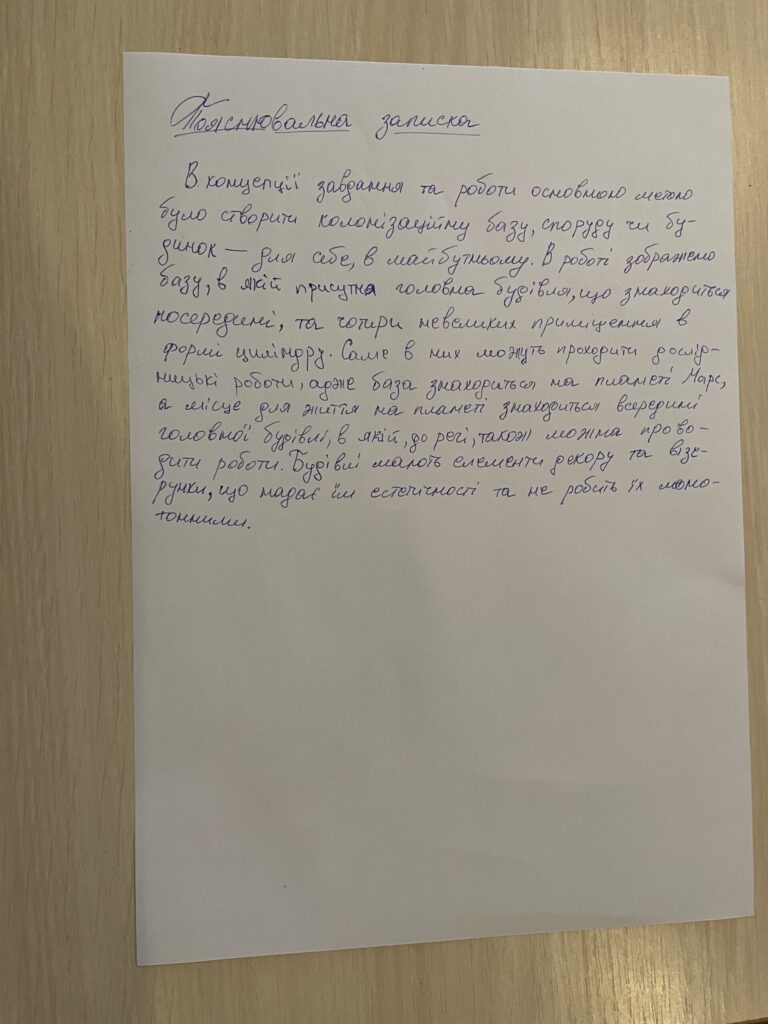 Пояснювальна записка
В концепції завдання та роботи основною метою
було створити колонізаційну базу, споруду чи бу-
динок — для себе, в майбутньому. В роботі зображено
базу, в якій присутня головна будівля, що знаходиться
посередині, та чотири невеликих приміщення в
формі циліндру. Саме в них можуть проходити дослід-
ницькі роботи, адже база знаходиться на планеті Марс,
а місце для життя на планеті знаходиться всередині
головної будівлі, в якій, до речі, також можна прово-
дити роботи. Будівлі мають елементи декору та візе-
рунки, що надає їм естетічності та не робить їх моно-
тонними.